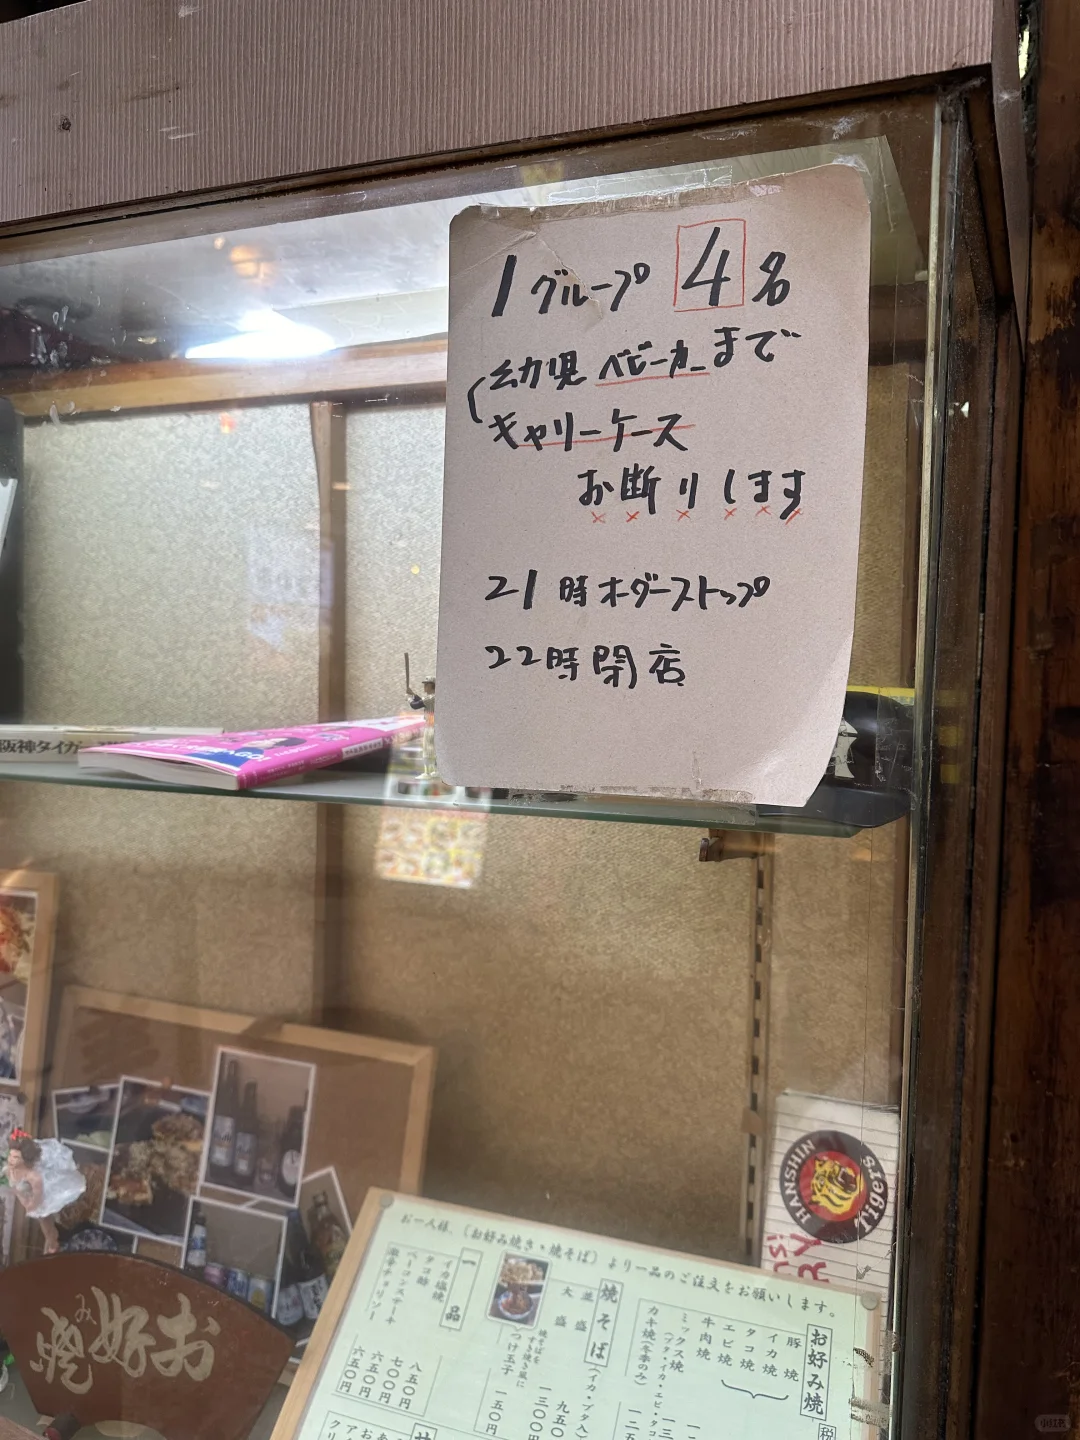 1グループ 4名
幼児 ベビーカーまで
キャリーケース
お断りします
21時オーダーストップ
22時閉店
阪神タイガース
HANSHIN Tigers
お好み焼
お一人様、(お好み焼き・焼そば)より一品のご注文をお願いします。
お好み焼
豚焼
イカ焼
タコ焼
エビ焼
牛肉焼
ミックス焼
カキ焼(冬季のみ)
焼そば(イカ・ブタ入)
並盛
大盛
焼そばを
すき焼き風に
つけ玉子
九五〇
一三〇〇円
一五〇円
一品
イカ塩焼
タコ酢
ベーコンステーキ
激辛チョリソー
八五〇円
七〇〇円
六五〇円
六五〇円
小红书